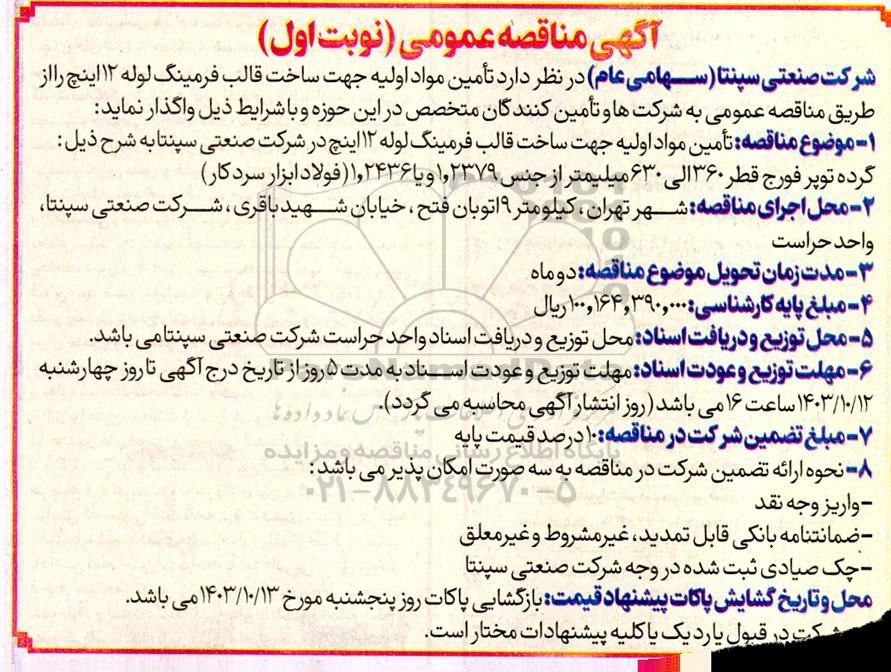 آگهی مناقصه عمومی (نوبت اول)
شرکت صنعتی سپنتا (سهامی عام) در نظر دارد تأمین مواد اولیه جهت ساخت قالب فرمینگ لوله ۱۲ اینچ را از
طریق مناقصه عمومی به شرکت ها و تأمین کنندگان متخصص در این حوزه و با شرایط ذیل واگذار نماید:
۱- موضوع مناقصه: تأمین مواد اولیه جهت ساخت قالب فرمینگ لوله ۱۲ اینچ در شرکت صنعتی سپنتا به شرح ذیل:
گرده توپر فورج قطر ۳۶۰ الی ۶۳۰ میلیمتر از جنس ۱,۲۳۷۹ و یا ۱,۲۴۳۶ (فولاد ابزار سردکار)
۲- محل اجرای مناقصه: شهر تهران، کیلومتر ۹ اتوبان فتح، خیابان شهید باقری، شرکت صنعتی سپنتا،
واحد حراست
۳- مدت زمان تحویل موضوع مناقصه: دو ماه
۴- مبلغ پایه کارشناسی: ۱۰۰,۱۶۴,۳۹۰,۰۰۰ ریال
۵- محل توزیع و دریافت اسناد: محل توزیع و دریافت اسناد واحد حراست شرکت صنعتی سپنتا می باشد.
۶- مهلت توزیع و عودت اسناد: مهلت توزیع و عودت اسناد به مدت ۵ روز از تاریخ درج آگهی تا روز چهارشنبه
۱۴۰۳/۱۰/۱۲ ساعت ۱۶ می باشد (روز انتشار آگهی محاسبه می گردد).
۷- مبلغ تضمین شرکت در مناقصه: ۱۰ درصد قیمت پایه
پایگاه اطلاع رسانی مناقصه و مزایده
۸- نحوه ارائه تضمین شرکت در مناقصه به سه صورت امکان پذیر می باشد:
۰۲۱-۸۸۳۴۹۶۷۰-۵
- واریز وجه نقد
- ضمانتنامه بانکی قابل تمدید، غیرمشروط و غیرمعلق
- چک صیادی ثبت شده در وجه شرکت صنعتی سپنتا
محل و تاریخ گشایش پاکات پیشنهاد قیمت: بازگشایی پاکات روز پنجشنبه مورخ ۱۴۰۳/۱۰/۱۳ می باشد.
شرکت در قبول یا رد یک یا کلیه پیشنهادات مختار است.